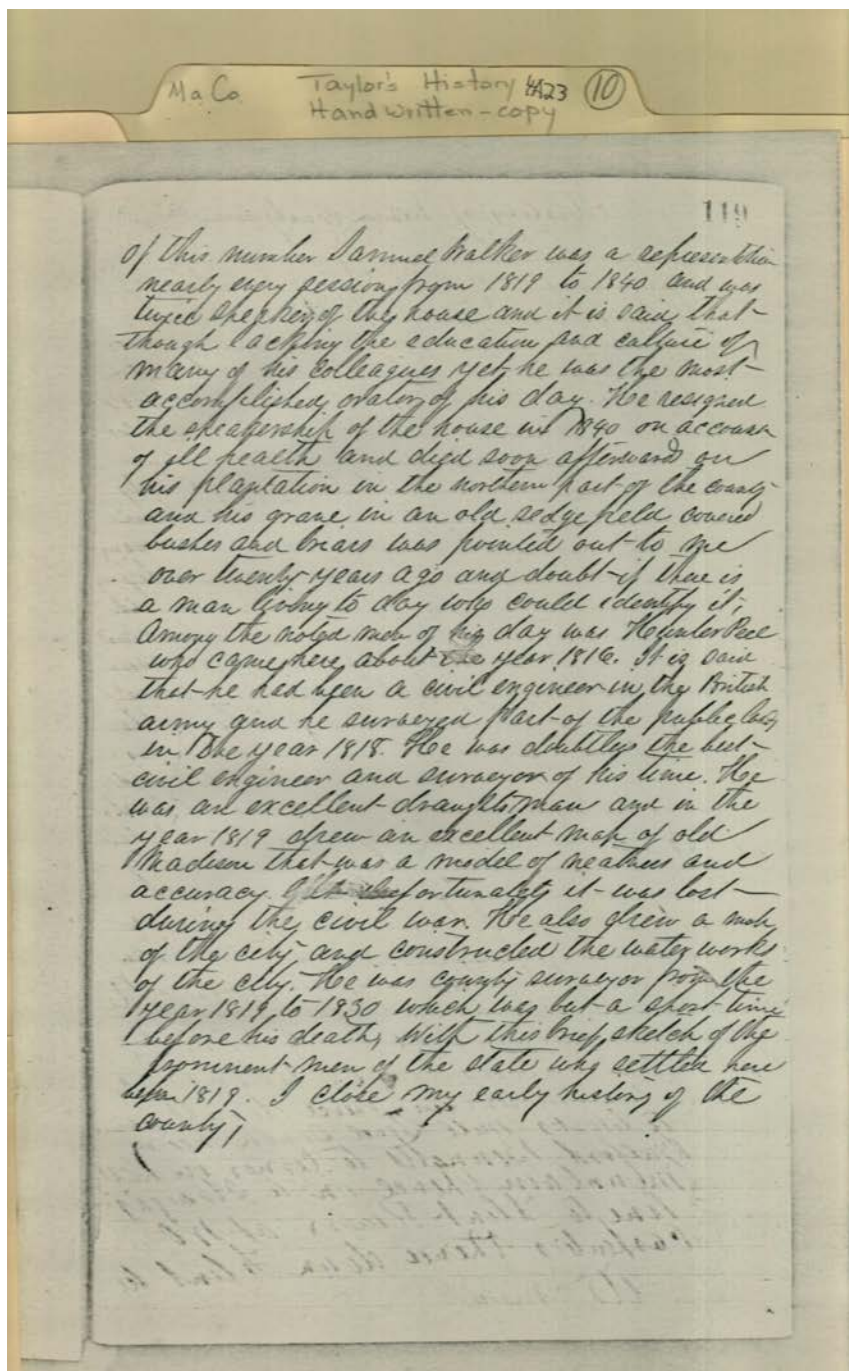 Ma Co Taylor's History 4A23 10
Hand written - copy
119
of this number Samuel Walker was a representative
nearly every session from 1819 to 1840 and was
twice speaker of the house and it is said that
though lacking the education and culture of
many of his colleagues yet he was the most
accomplished orator of his day. He resigned
the speakership of the house in 1840 on account
of ill health and died soon afterwards on
his plantation in the northern part of the county
and his grave in an old sedge field covered
bushes and briars was pointed out to me
over twenty years ago and doubt if there is
a man living to day who could identify it,
Among the noted men of his day was Hunter Peel
who came here about the year 1816. It is said
that he had been a civil engineer in the British
army and he surveyed part of the public lands
in the year 1818. He was doubtless the best
civil engineer and surveyor of his time. He
was an excellent draughtsman and in the
year 1819 drew an excellent map of old
Madison that was a model of neatness and
accuracy. Unfortunately it was lost
during the civil war. He also drew a map
of the city, and constructed the water works
of the city. He was county surveyor from the
year 1819 to 1830 which was but a short time
before his death, With this brief sketch of the
prominent men of the state who settled here
1819. I close my early history of the
county,